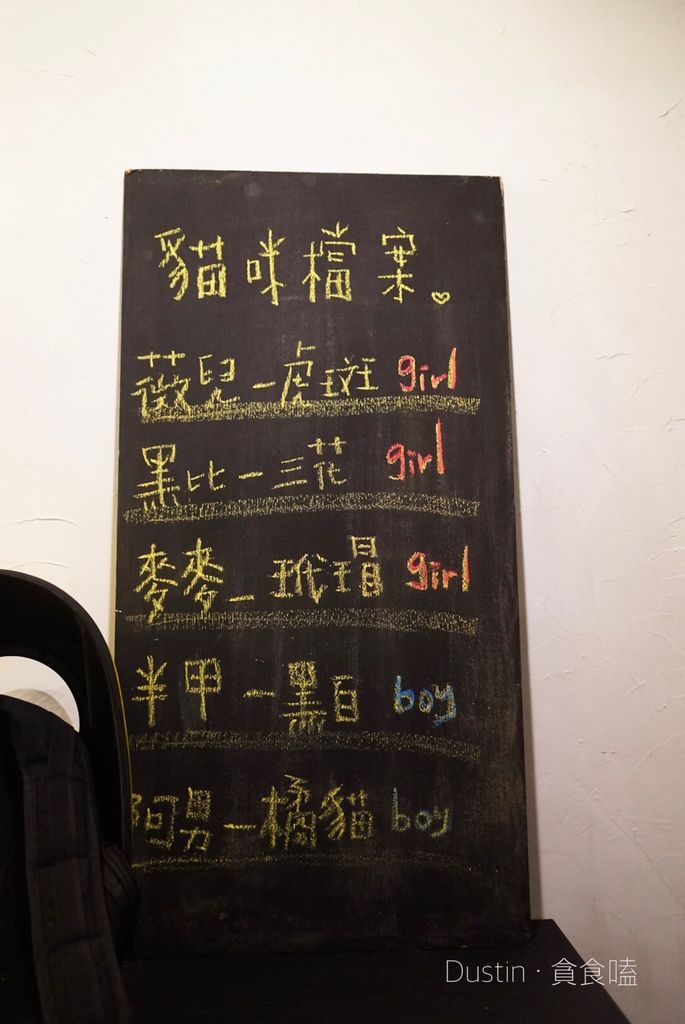 貓咪檔案。
薇兒－虎斑 girl
黑比－三花 girl
麥麥－玳瑁 girl
半甲－黑白 boy
阿男－橘貓 boy
Dustin · 貪食嗑